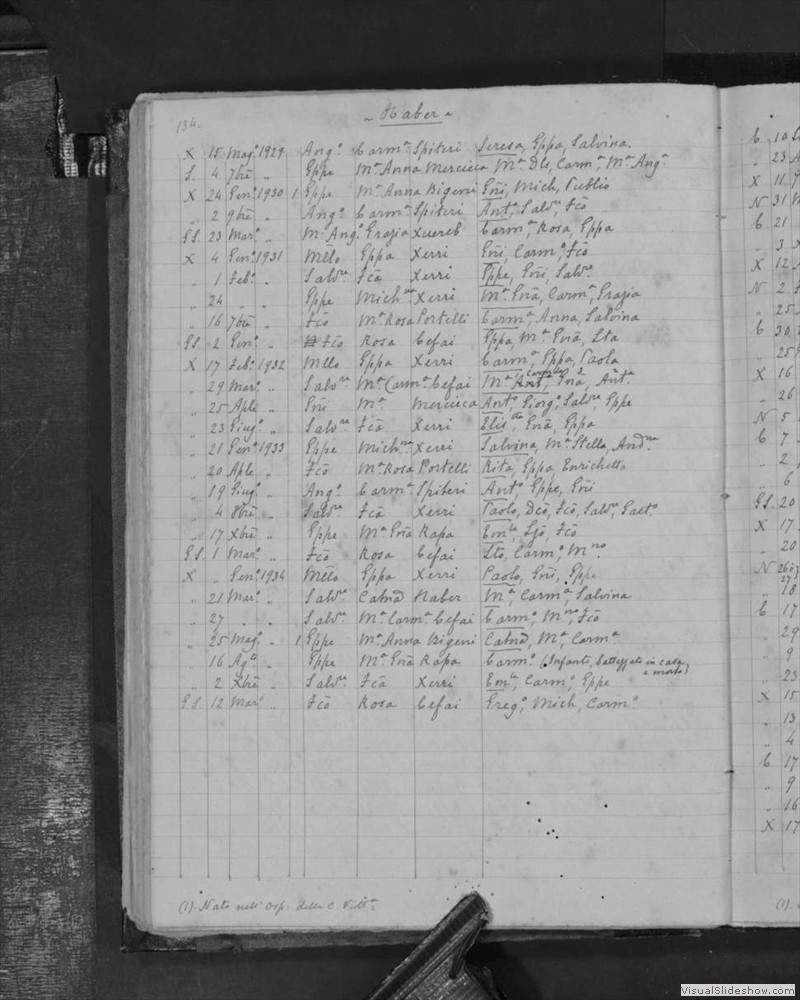 134.
Haber
X 15 Magº 1929 Angº Carmª Spiteri Teresa, Eppa, Salvina.
S. 4 7bre „ Eppe Mª Anna Mercieca Mª Ds, Carmª, Mª Angª
X 24 Genº 1930 1 Eppe Mª Anna Bigeni Eñi, Mich, Publio
„ 2 9bre „ Angº Carmª Spiteri Antª, Salvª, Fcõ
G.S. 23 Marº „ Mª Angª Grazia Xuereb Carmª, Rosa, Eppa
X 4 Genº 1931 Mèlo Eppa Xerri Eñi, Carmº, Fcõ
„ 1 Febº „ Salvre Fcã Xerri Eppe, Eñi, Salvre
„ 24 „ „ Eppe Michna Xerri Mª Eñã, Carmª, Grazia
„ 16 7bre „ Fcõ Mª Rosa Portelli Carmª, Anna, Salvina
G.S. 2 Genº „ Fcõ Rosa Cefai Eppa, Mª Eñã, Sta
X 17 Febº 1932 Mèlo Eppa Xerri Carmª, Eppa, Paola
„ 29 Marº „ Salvre Mª Carmª Cefai Mª Eñã, Antª
„ 25 Aple „ Eñi Mª Mercieca Antº, Giorgº, Salvre, Eppe
„ 23 Giugº „ Salvre Fcã Xerri Elis, Eñã, Eppa
„ 21 Genº 1933 Eppe Michna Xerri Salvina, Mª Stella, Andna
„ 20 Aple „ Fcõ Mª Rosa Portelli Rita, Eppa, Enrichetta
„ 19 Giugº „ Angº Carmª Spiteri Antº, Eppe, Eñi
„ 4 8bre „ Salvre Fcã Xerri Paolo, Dcõ, Fcõ, Salvre, Gaetº
„ 17 Xbre „ Eppe Mª Eñã Rapa Emle, Ljõ, Fcõ
G.S. 1 Marº „ Fcõ Rosa Cefai Sto, Carmº, Mno
X „ Genº 1934 Mèlo Eppa Xerri Paolo, Eñi, Eppe
„ 21 Marº „ Salvre Catnã Haber Mª, Carmª, Salvina
„ 27 „ „ Salvre Mª Carmª Cefai Carmº, Mno, Fcõ
„ 25 Magº „ 1 Eppe Mª Anna Bigeni Catnã, Mª, Carmª
„ 16 Agto „ Eppe Mª Eñã Rapa Carmº (Infante, battezzato in casa e morto)
„ 2 Xbre „ Salvre Fcã Xerri Emle, Carmº, Eppe
G.S. 12 Marº „ Fcõ Rosa Cefai Gregº, Mich, Carmº
(1) Nato nell' Osp. della C. Vittª
C 10
„ 23
X 11
N 31
C 21
„ 3
X 12
N 2
„ 25
C 30
„ 25
X 16
„ 26
N 5
C 7
„ 2
„ 6
G.S. 20
X 17
„ 20
N 26
27
„ 18
C 17
„ 29
„ 9
„ 23
X 15
„ 13
„ 4
C 17
„ 9
„ 16
X 17
(1).
VisualSlideshow.com